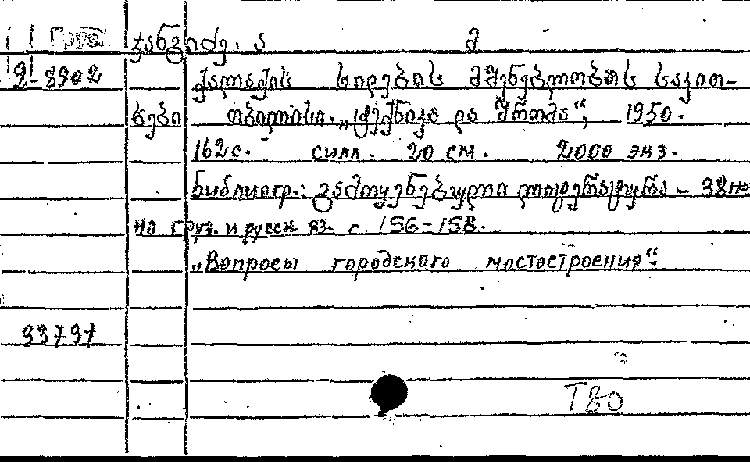 ჯანჯიძე. ა
2-8902 ქალაქის ხიდების მშენებლობის საკით-
ხები თბილისი. „ტექნიკა და შრომა“, 1950.
162 с. силл. 20 см. 2000 экз.
библиогр.: გამოყენებული ლიტერატურა - 38 наз.
на груз. и русск яз. с. 156-158.
„Вопросы городского мостостроения“.
33797
Т80